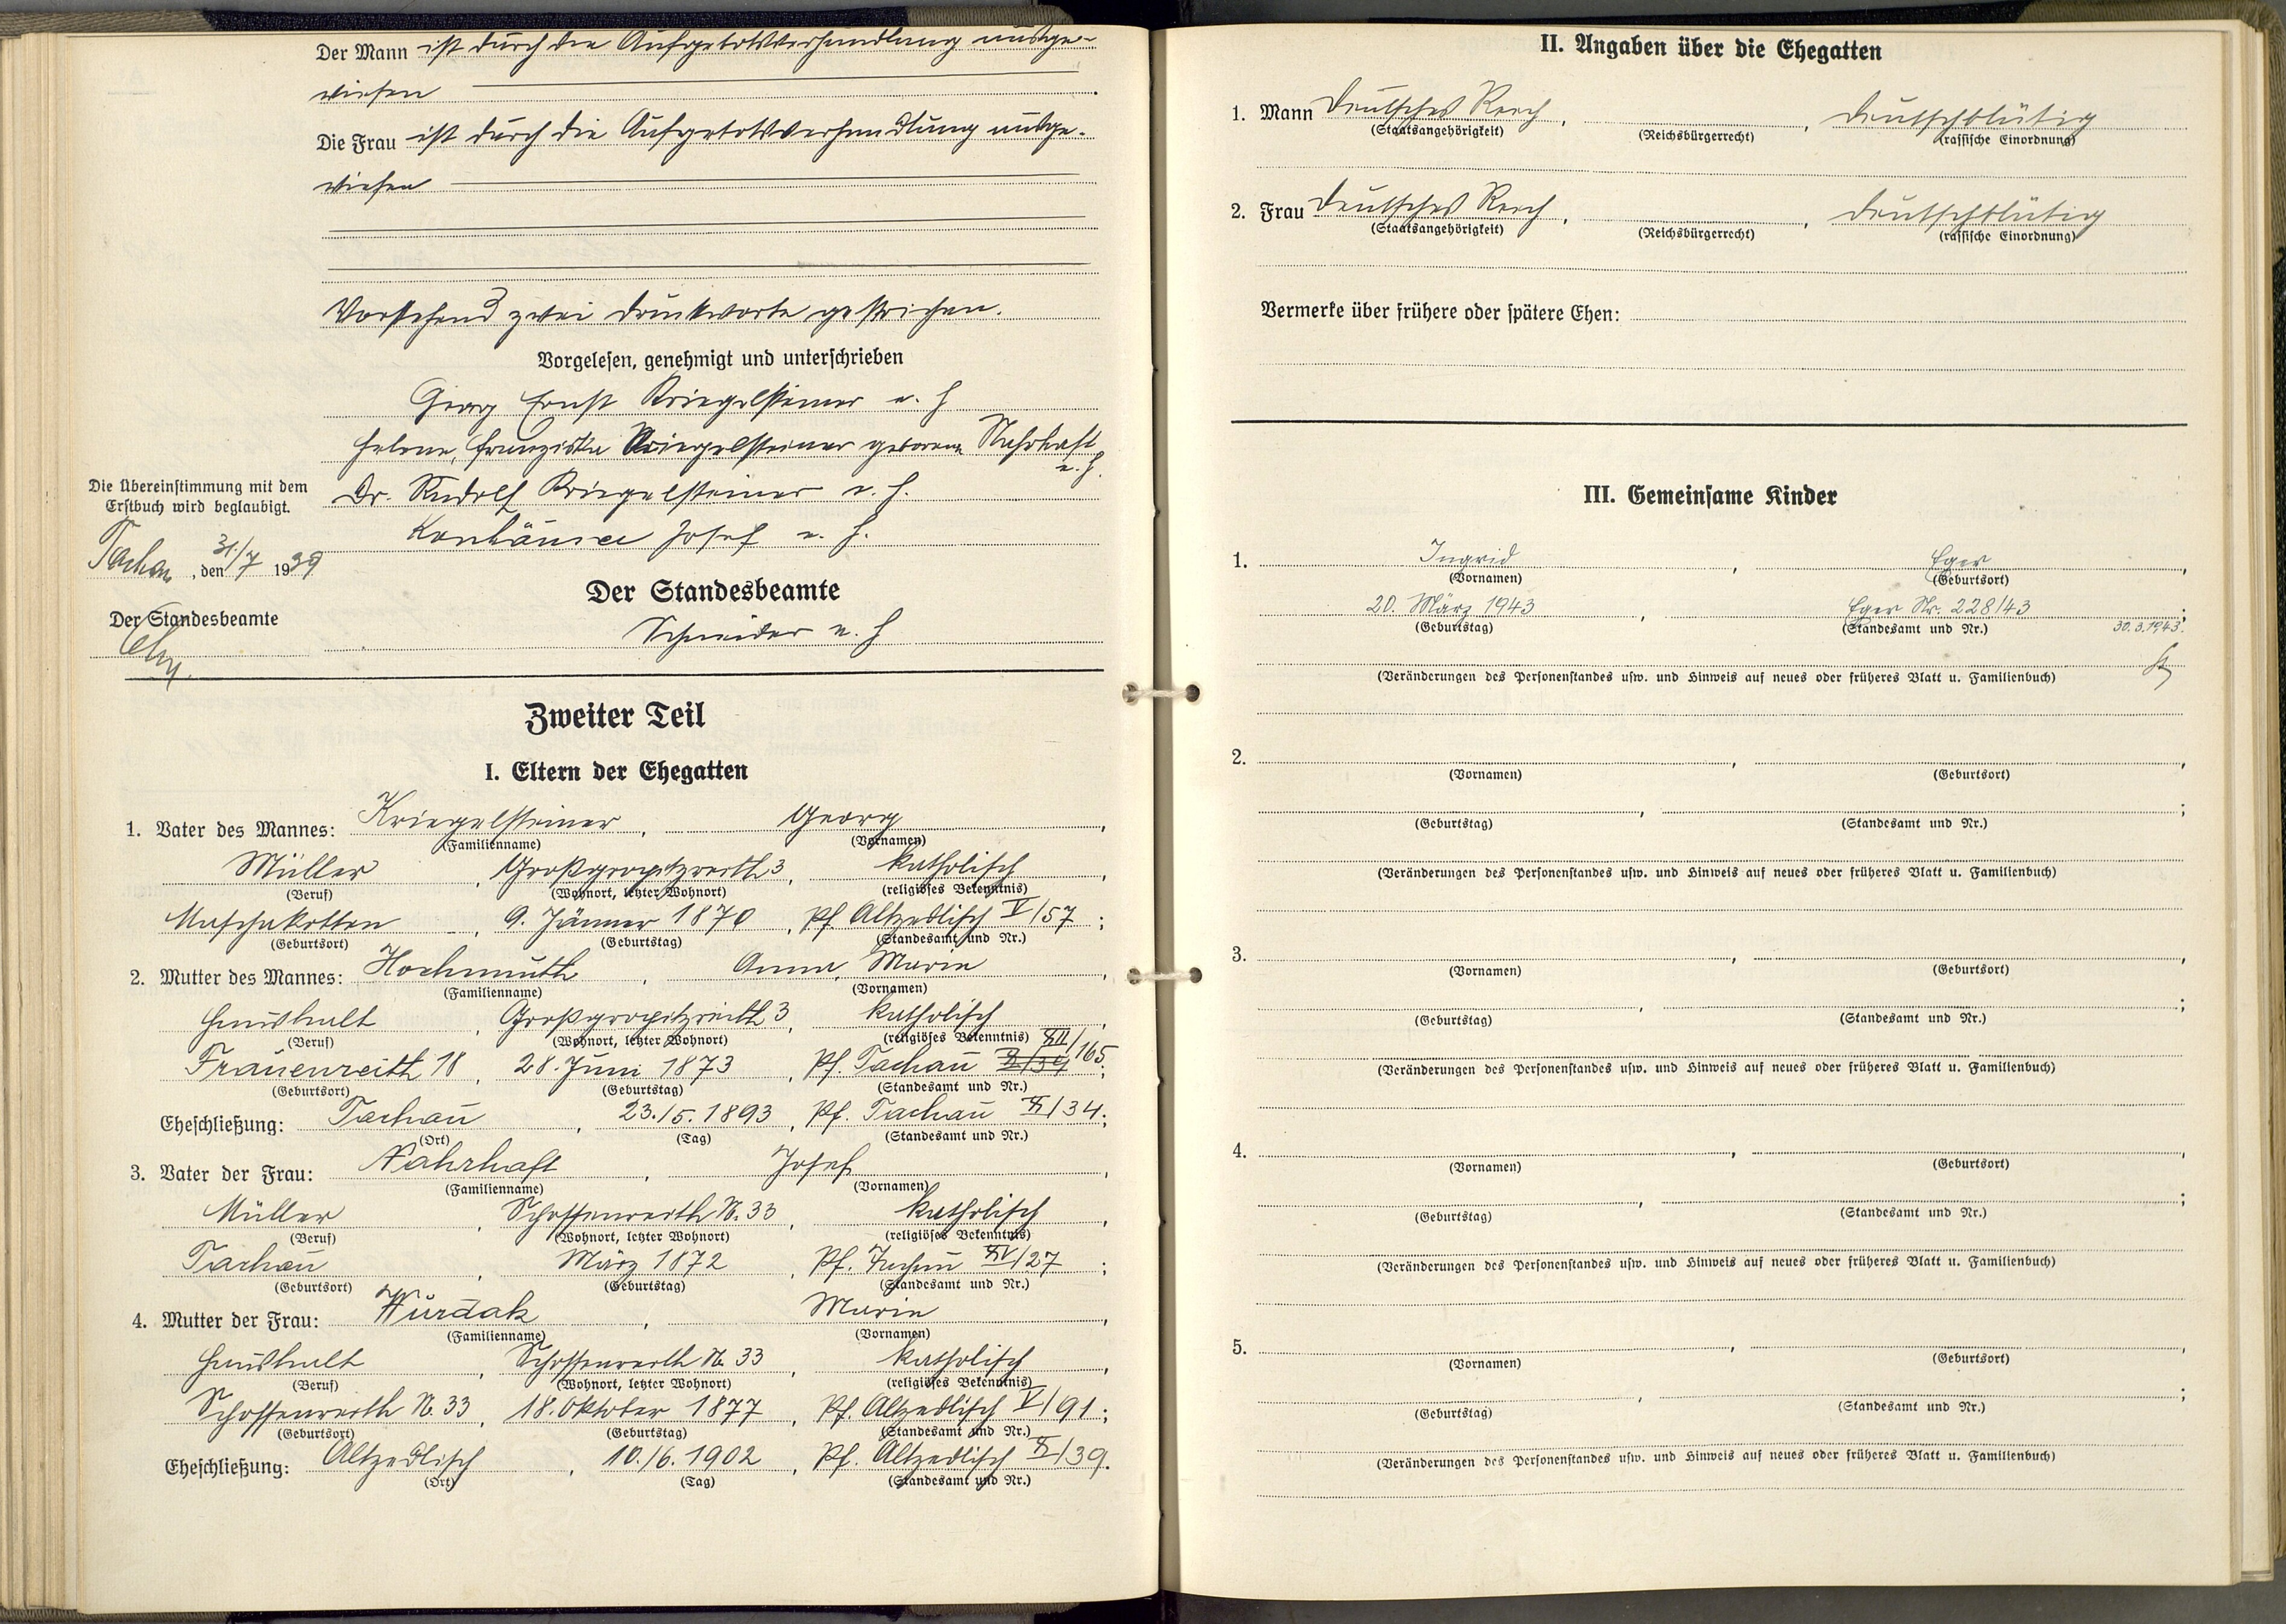 Der Mann ist durch die Aufgebotsverhandlung ausge-
wiesen
Die Frau ist durch die Aufgebotsverhandlung ausge-
wiesen
Vorstehend zwei Druckworte gestrichen.
Vorgelesen, genehmigt und unterschrieben
Georg Ernst Kriegelsteiner e. h
Helene, Franziska Kriegelsteiner geborene Nahrhaft
e. h.
Dr. Rudolf Kriegelsteiner e. h.
Josef e. h.
Die Übereinstimmung mit dem
Erstbuch wird beglaubigt.
Tachau, den 31/7 1939
Der Standesbeamte
Der Standesbeamte
Schneider e. h
Zweiter Teil
I. Eltern der Ehegatten
1. Vater des Mannes: Kriegelsteiner, Georg,
(Familienname) (Vornamen)
Müller, Großgropitzreith 3, katholisch,
(Beruf) (Wohnort, letzter Wohnort) (religiöses Bekenntnis)
Maschakotten, 9. Jänner 1870, Pf. Altzedlisch V/57;
(Geburtsort) (Geburtstag) (Standesamt und Nr.)
2. Mutter des Mannes: Hochmuth, Anna, Marie,
(Familienname) (Vornamen)
Haushalt, Großgropitzreith 3, katholisch,
(Beruf) (Wohnort, letzter Wohnort) (religiöses Bekenntnis)
Frauenreith 18, 28. Juni 1873, Pf. Tachau XII/165;
(Geburtsort) (Geburtstag) (Standesamt und Nr.)
Eheschließung: Tachau, 23./5. 1893, Pf. Tachau X/34;
(Ort) (Tag) (Standesamt und Nr.)
3. Vater der Frau: Nahrhaft, Josef,
(Familienname) (Vornamen)
Müller, Schossenreith N. 33, katholisch,
(Beruf) (Wohnort, letzter Wohnort) (religiöses Bekenntnis)
Tachau, März 1872, Pf. Tachau /27;
(Geburtsort) (Geburtstag) (Standesamt und Nr.)
4. Mutter der Frau: Wurdak, Marie,
(Familienname) (Vornamen)
Haushalt, Schossenreith N. 33, katholisch,
(Beruf) (Wohnort, letzter Wohnort) (religiöses Bekenntnis)
Schossenreith N. 33, 18. Oktober 1877, Pf. Altzedlisch V/91;
(Geburtsort) (Geburtstag) (Standesamt und Nr.)
Eheschließung: Altzedlisch, 10./6. 1902, Pf. Altzedlisch X/39.
(Ort) (Tag) (Standesamt und Nr.)
II. Angaben über die Ehegatten
1. Mann Deutsches Reich, , deutschblütig
(Staatsangehörigkeit) (Reichsbürgerrecht) (rassische Einordnung)
2. Frau Deutsches Reich, , deutschblütig
(Staatsangehörigkeit) (Reichsbürgerrecht) (rassische Einordnung)
Vermerke über frühere oder spätere Ehen:
III. Gemeinsame Kinder
1. Ingrid, Eger,
(Vornamen) (Geburtsort)
20. März 1943, Eger Nr. 228/43;
(Geburtstag) (Standesamt und Nr.) 30.3.1943.
(Veränderungen des Personenstandes usw. und Hinweis auf neues oder früheres Blatt u. Familienbuch)
2. , ,
(Vornamen) (Geburtsort)
, ;
(Geburtstag) (Standesamt und Nr.)
(Veränderungen des Personenstandes usw. und Hinweis auf neues oder früheres Blatt u. Familienbuch)
3. , ,
(Vornamen) (Geburtsort)
, ;
(Geburtstag) (Standesamt und Nr.)
(Veränderungen des Personenstandes usw. und Hinweis auf neues oder früheres Blatt u. Familienbuch)
4. , ,
(Vornamen) (Geburtsort)
, ;
(Geburtstag) (Standesamt und Nr.)
(Veränderungen des Personenstandes usw. und Hinweis auf neues oder früheres Blatt u. Familienbuch)
5. , ,
(Vornamen) (Geburtsort)
, ;
(Geburtstag) (Standesamt und Nr.)
(Veränderungen des Personenstandes usw. und Hinweis auf neues oder früheres Blatt u. Familienbuch)